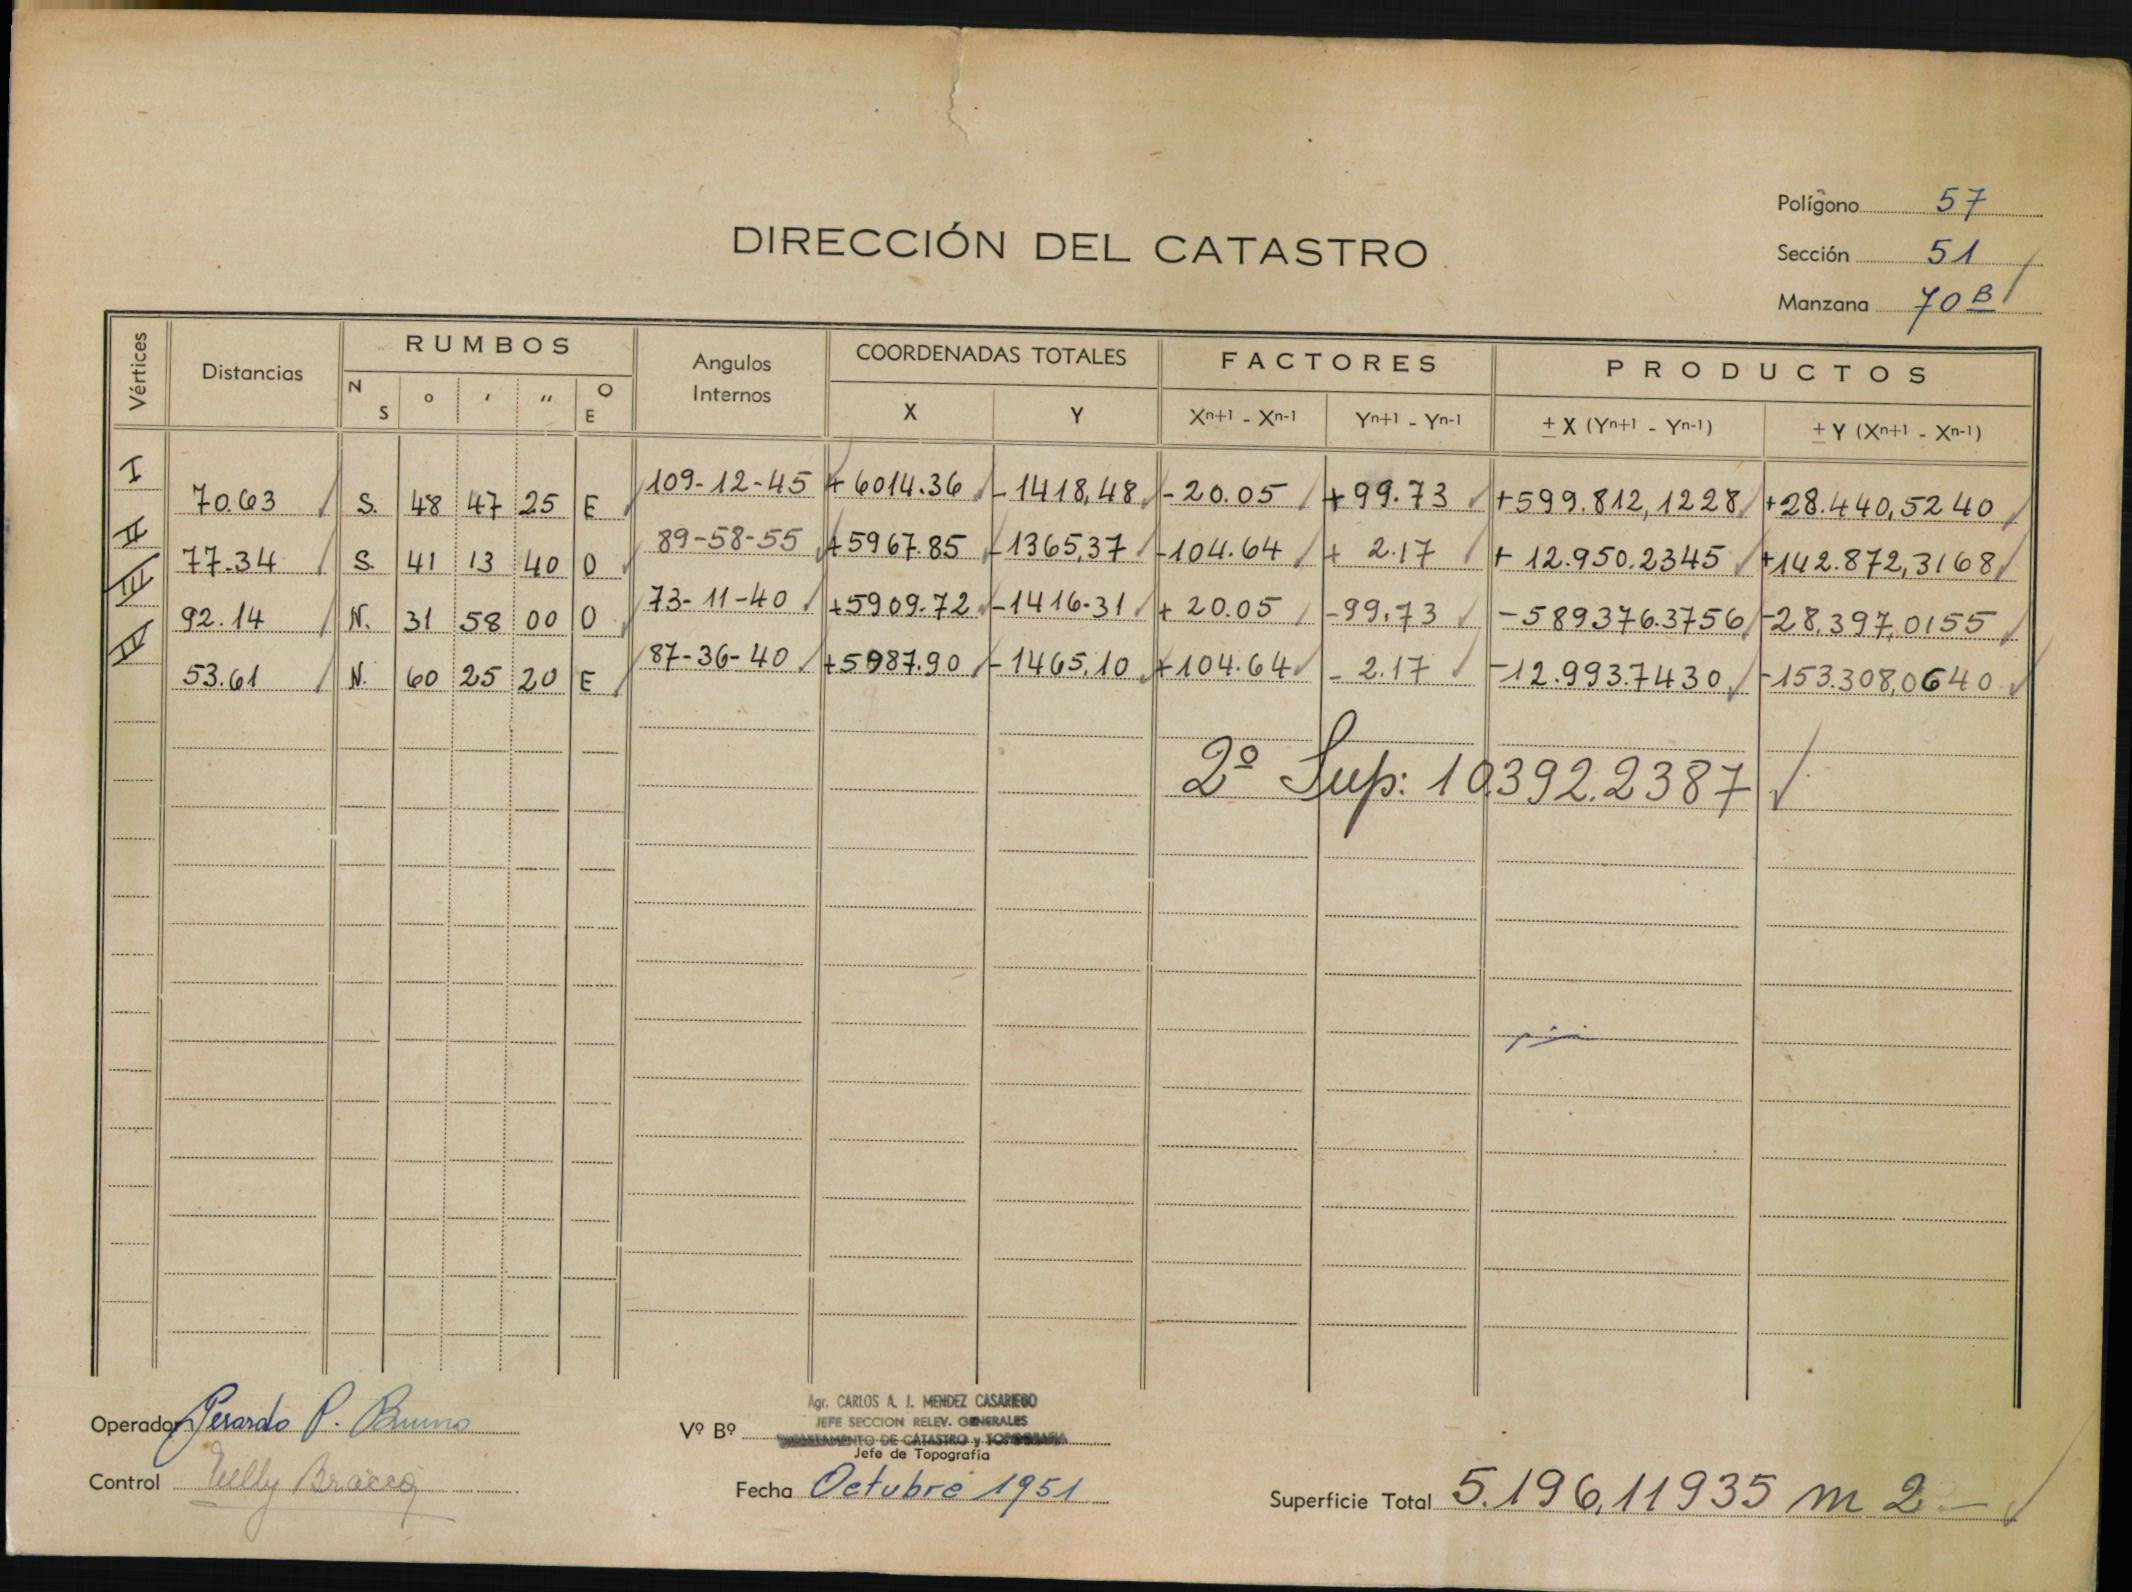 Polígono 57
DIRECCIÓN DEL CATASTRO
Sección 51
Manzana 70 B
Vértices Distancias RUMBOS Angulos Internos COORDENADAS TOTALES FACTORES PRODUCTOS
N S ° ' " O E X Y Xn+1 - Xn-1 Yn+1 - Yn-1 ± X (Yn+1 - Yn-1) ± Y (Xn+1 - Xn-1)
I 70.63 S. 48 47 25 E 109-12-45 + 6014.36 - 1418,48 - 20.05 + 99.73 + 599.812,1228 + 28.440,5240
II 77.34 S. 41 13 40 O 89-58-55 + 5967.85 - 1365,37 - 104.64 + 2.17 + 12.950.2345 + 142.872,3168
III 92.14 N. 31 58 00 O 73-11-40 + 5909.72 - 1416.31 + 20.05 - 99.73 - 589376.3756 - 28.397,0155
IV 53.61 N. 60 25 20 E 87-36-40 + 5987.90 - 1465.10 + 104.64 - 2.17 - 12.993.7430 - 153.308,0640
2º Sup: 10.392.2387
Operador Gerardo P. Bruno
Control Nelly
Vº Bº
Agr. CARLOS A. J. MENDEZ CASARIEGO
JEFE SECCION RELEV. GENERALES
DEPARTAMENTO DE CATASTRO y TOPOGRAFIA
Jefe de Topografía
Fecha Octubre 1951
Superficie Total 5.196,11935 m 2.—